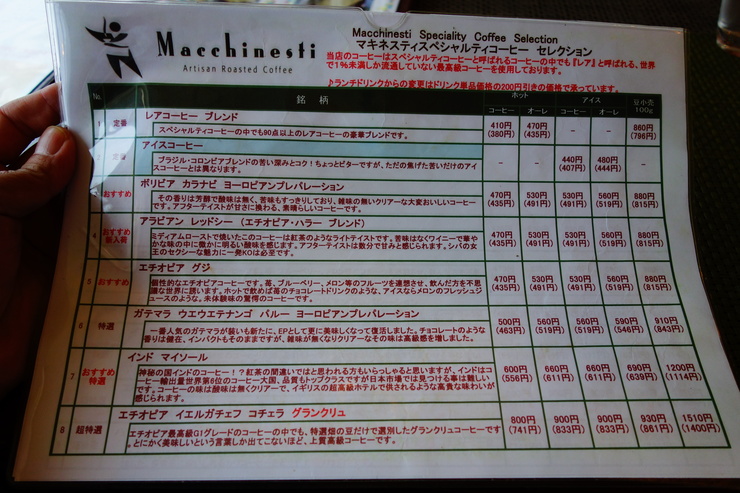 Macchinesti
Artisan Roasted Coffee
Macchinesti Speciality Coffee Selection
マキネスティスペシャルティコーヒー セレクション
当店のコーヒーはスペシャルティコーヒーと呼ばれるコーヒーの中でも『レア』と呼ばれる、世界
で1%未満しか流通していない最高級コーヒーを使用しております。
ランチドリンクからの変更はドリンク単品価格の200円引きの価格で承っています。
No. 銘柄 ホット アイス 豆小売
コーヒー オーレ コーヒー オーレ 100g
定番 レアコーヒー ブレンド 410円 470円 - - 860円
スペシャルティコーヒーの中でも90点以上のレアコーヒーの豪華ブレンドです。 (380円) (435円) (796円)
アイスコーヒー - - 440円 480円 -
ブラジル・コロンビアブレンドの苦い深みとコク!ちょっとビターですが、ただの焦げた苦いだけのアイ (407円) (444円)
スコーヒーとは異なります。
おすすめ ボリビア カラナビ ヨーロピアンプレパレーション 470円 530円 530円 560円 880円
その香りは芳醇で酸味は無く、苦味もすっきりしており、雑味の無いクリアーな大変おいしいコーヒー (435円) (491円) (491円) (519円) (815円)
です。アフターテイストが甘さに換わる、素晴らしいコーヒーです。
4 おすすめ 新入荷 アラビアン レッドシー (エチオピア・ハラー ブレンド) 470円 530円 530円 560円 880円
ミディアムローストで焼いたこのコーヒーは紅茶のようなライトテイストです。苦味はなくワイニーで華や (435円) (491円) (491円) (519円) (815円)
かな味の中に微かに明るい酸味を感じます。アフターテイストは数分で甘みと感じられます。シバの女
王のセクシーな魅力に一発KOは必至です。
5 おすすめ エチオピア グジ 470円 530円 530円 560円 880円
個性的なエチオピアコーヒーです。苺、ブルーベリー、メロン等のフルーツを連想させ、飲んだ方を不思 (435円) (491円) (491円) (519円) (815円)
議な世界に誘います。ホットで飲めば苺のチョコレートドリンクのような、アイスならメロンのフレッシュジ
ュースのような。未体験味の驚愕のコーヒーです。
6 特選 ガテマラ ウエウエテナンゴ バルー ヨーロピアンプレパレーション 500円 560円 560円 590円 910円
一番人気のガテマラが装いも新たに、EPとして更に美味しくなって復活しました。チョコレートのような (463円) (519円) (519円) (546円) (843円)
香りは健在、インパクトもそのままですが、雑味が無くなりクリアーなその味は高級感を増しました。
7 おすすめ 特選 インド マイソール 600円 660円 660円 690円 1200円
神秘の国インドのコーヒー!?紅茶の間違いではと思われる方もいらっしゃると思いますが、インドはコ (556円) (611円) (611円) (639円) (1114円)
ーヒー輸出量世界第6位のコーヒー大国、品質もトップクラスですが日本市場では見つける事は難しい
です。コーヒーの味は酸味は無くクリアーで、イギリスの超高級ホテルで供されるような高貴な味わいが
感じられます。
8 超特選 エチオピア イエルガチェフ コチェラ グランクリュ 800円 900円 900円 930円 1510円
エチオピア最高級G1グレードのコーヒーの中でも、特選畑の豆だけで選別したグランクリュコーヒーです (741円) (833円) (833円) (861円) (1400円)
とにかく美味しいという言葉しか出てこないほど、上質高級コーヒーです。